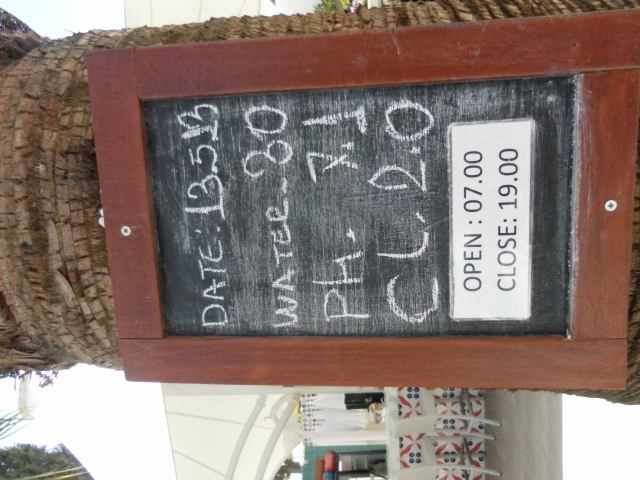 DATE: 13.5.13
WATER. 30
PH. 7.1
CL. 2.0
OPEN : 07.00
CLOSE: 19.00